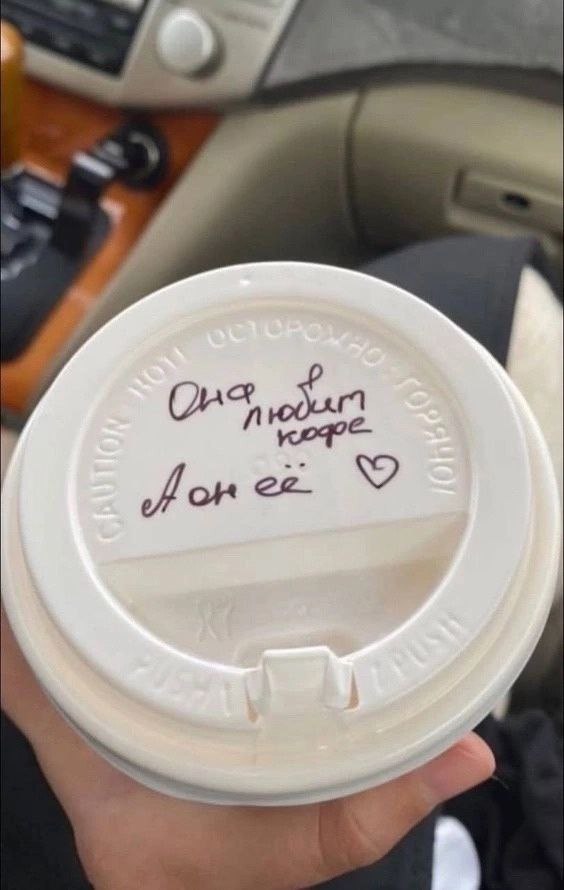 CAUTION HOT! ОСТОРОЖНО ГОРЯЧО!
Она
любит
кофе
А он её ♡
PUSH PUSH